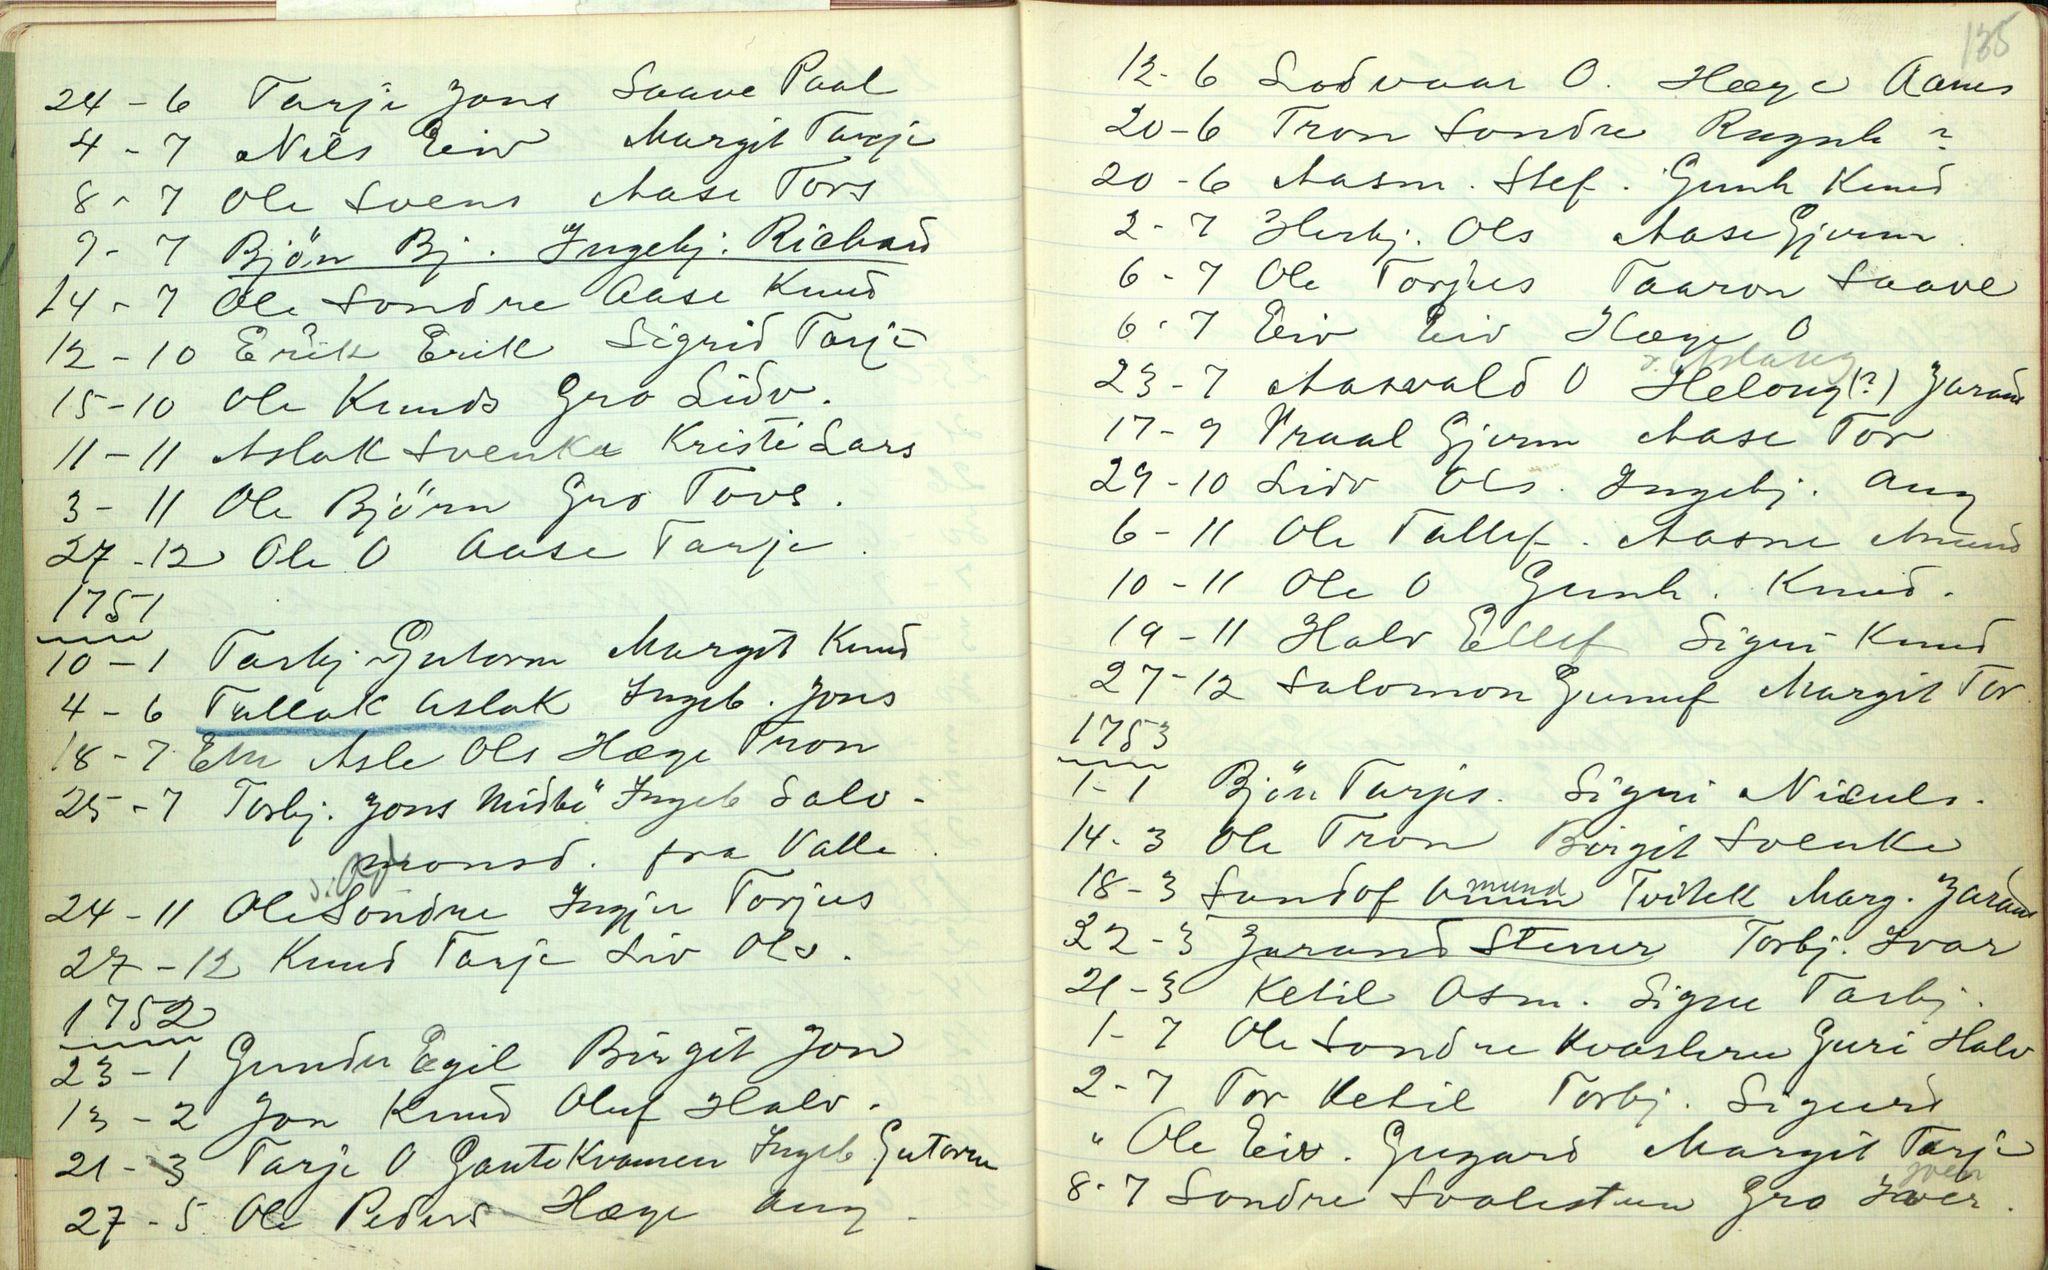 24 - 6 Tarje Jons Saave Paal
4 - 7 Nils Eiv Margit Tarje
8 - 7 Ole Svens Aase Tors
9 - 7 Björn Bj. Ingebj. Richard
14 - 7 Ole Sondre Aase Knud
12 - 10 Erik Erik Sigrid Tarje
15 - 10 Ole Knuds Gro Lidv.
11 - 11 Aslak Svenke Kristi Lars
3 - 11 Ole Björn Gro Tovs.
27 - 12 Ole O Aase Tarje.
1751
10 - 1 Tarbj Gutorm Margit Knud
4 - 6 Tallak Aslak Ingeb. Jons
18 - 7 Asle Ols Hæge Tron
25 - 7 Torbj. Jons Midbö Ingeb Salo-
monsd. fra Valle.
24 - 11 Ole Sondre Torjus
27 - 12 Knud Tarje Liv Ols.
1752
23 - 1 Gunder Egil Birgit Jon
13 - 2 Jon Knud Oluf Halv.
21 - 3 Tarje O Gaute Kvamen Ingeb Gutorm
27 - 5 Ole Peders Hæge Aug.
135
12 - 6 Lodvaar O. Hæge Aanes
20 - 6 Tron Sondre Ragnh ?
20 - 6 Aasm. Stef. Gunh Knud
2 - 7 Herbj. Ols Aase Gjerm.
6 - 7 Ole Torjus Taaron Saave
6 - 7 Eiv Eiv Hæge O
23 - 7 Aasvald O Helong (?) Jarand
17 - 9 Vraal Gjerm Aase Tor
29 - 10 Lidv Ols. Ingebj. Aug
6 - 11 Ole Tallef. Aasne Amund
10 - 11 Ole O Gunh. Knud.
19 - 11 Halv Ellef Signi Knud
27 - 12 Salomon Gunuf Margit Tor
1753
1 - 1 Björn Tarjes. Signi Niculs.
14 - 3 Ole Tron Birgit Svenke
18 - 3 Sundof Amund Tveitek Marg. Jarand
22 - 3 Jarand Stener Torbj. Ivar
21 - 3 Ketil Osm. Signe Tarbj.
1 - 7 Ole Sondre Guri Halv
2 - 7 Tor Ketil Torbj. Sigurd
" Ole Eiv. Gugard Margit Tarje
8 - 7 Sondre Svalestuen Gro Iver.